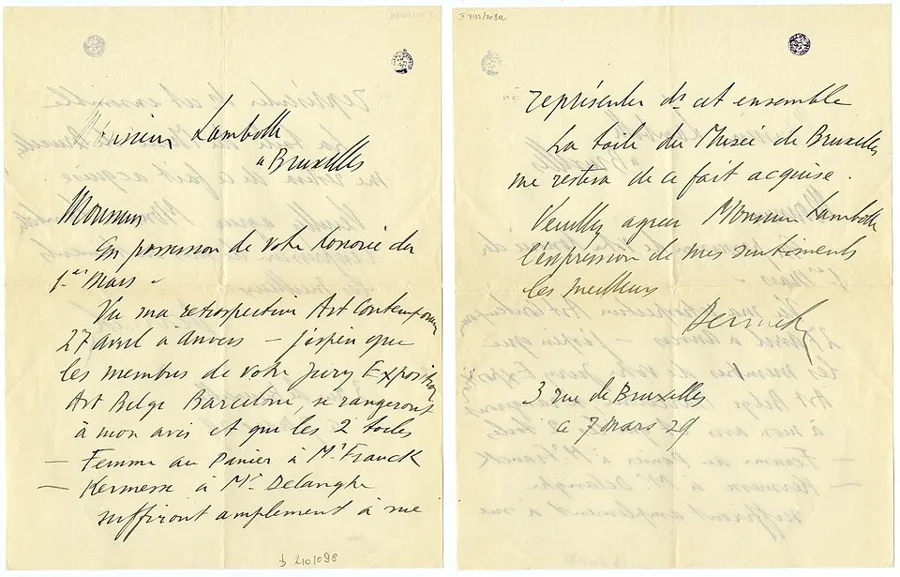 Monsieur Lambotte
à Bruxelles
Monsieur
En possession de votre honorée du
1er Mars –
Vu ma retrospective Art Contemporain
27 avril à Anvers – j'espère que
les membres de votre Jury Exposition
Art Belge Barcelone, se rangeront
à mon avis et que les 2 toiles
— Femme au Panier à Mr Franck
— Kermesse à Mr Delanghe
suffiront amplement à me
représenter ds cet ensemble
La toile du Musée de Bruxelles
me restera de ce fait acquise.
Veuillez agréer Monsieur Lambotte
l'expression de mes sentiments
les meilleurs
3 rue de Bruxelles
ce 7 mars 29